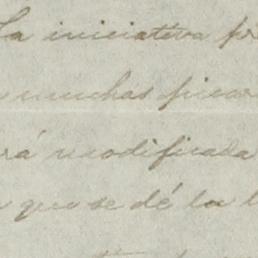 La iniciativa pr
muchas
rá modificada
que se dé la l